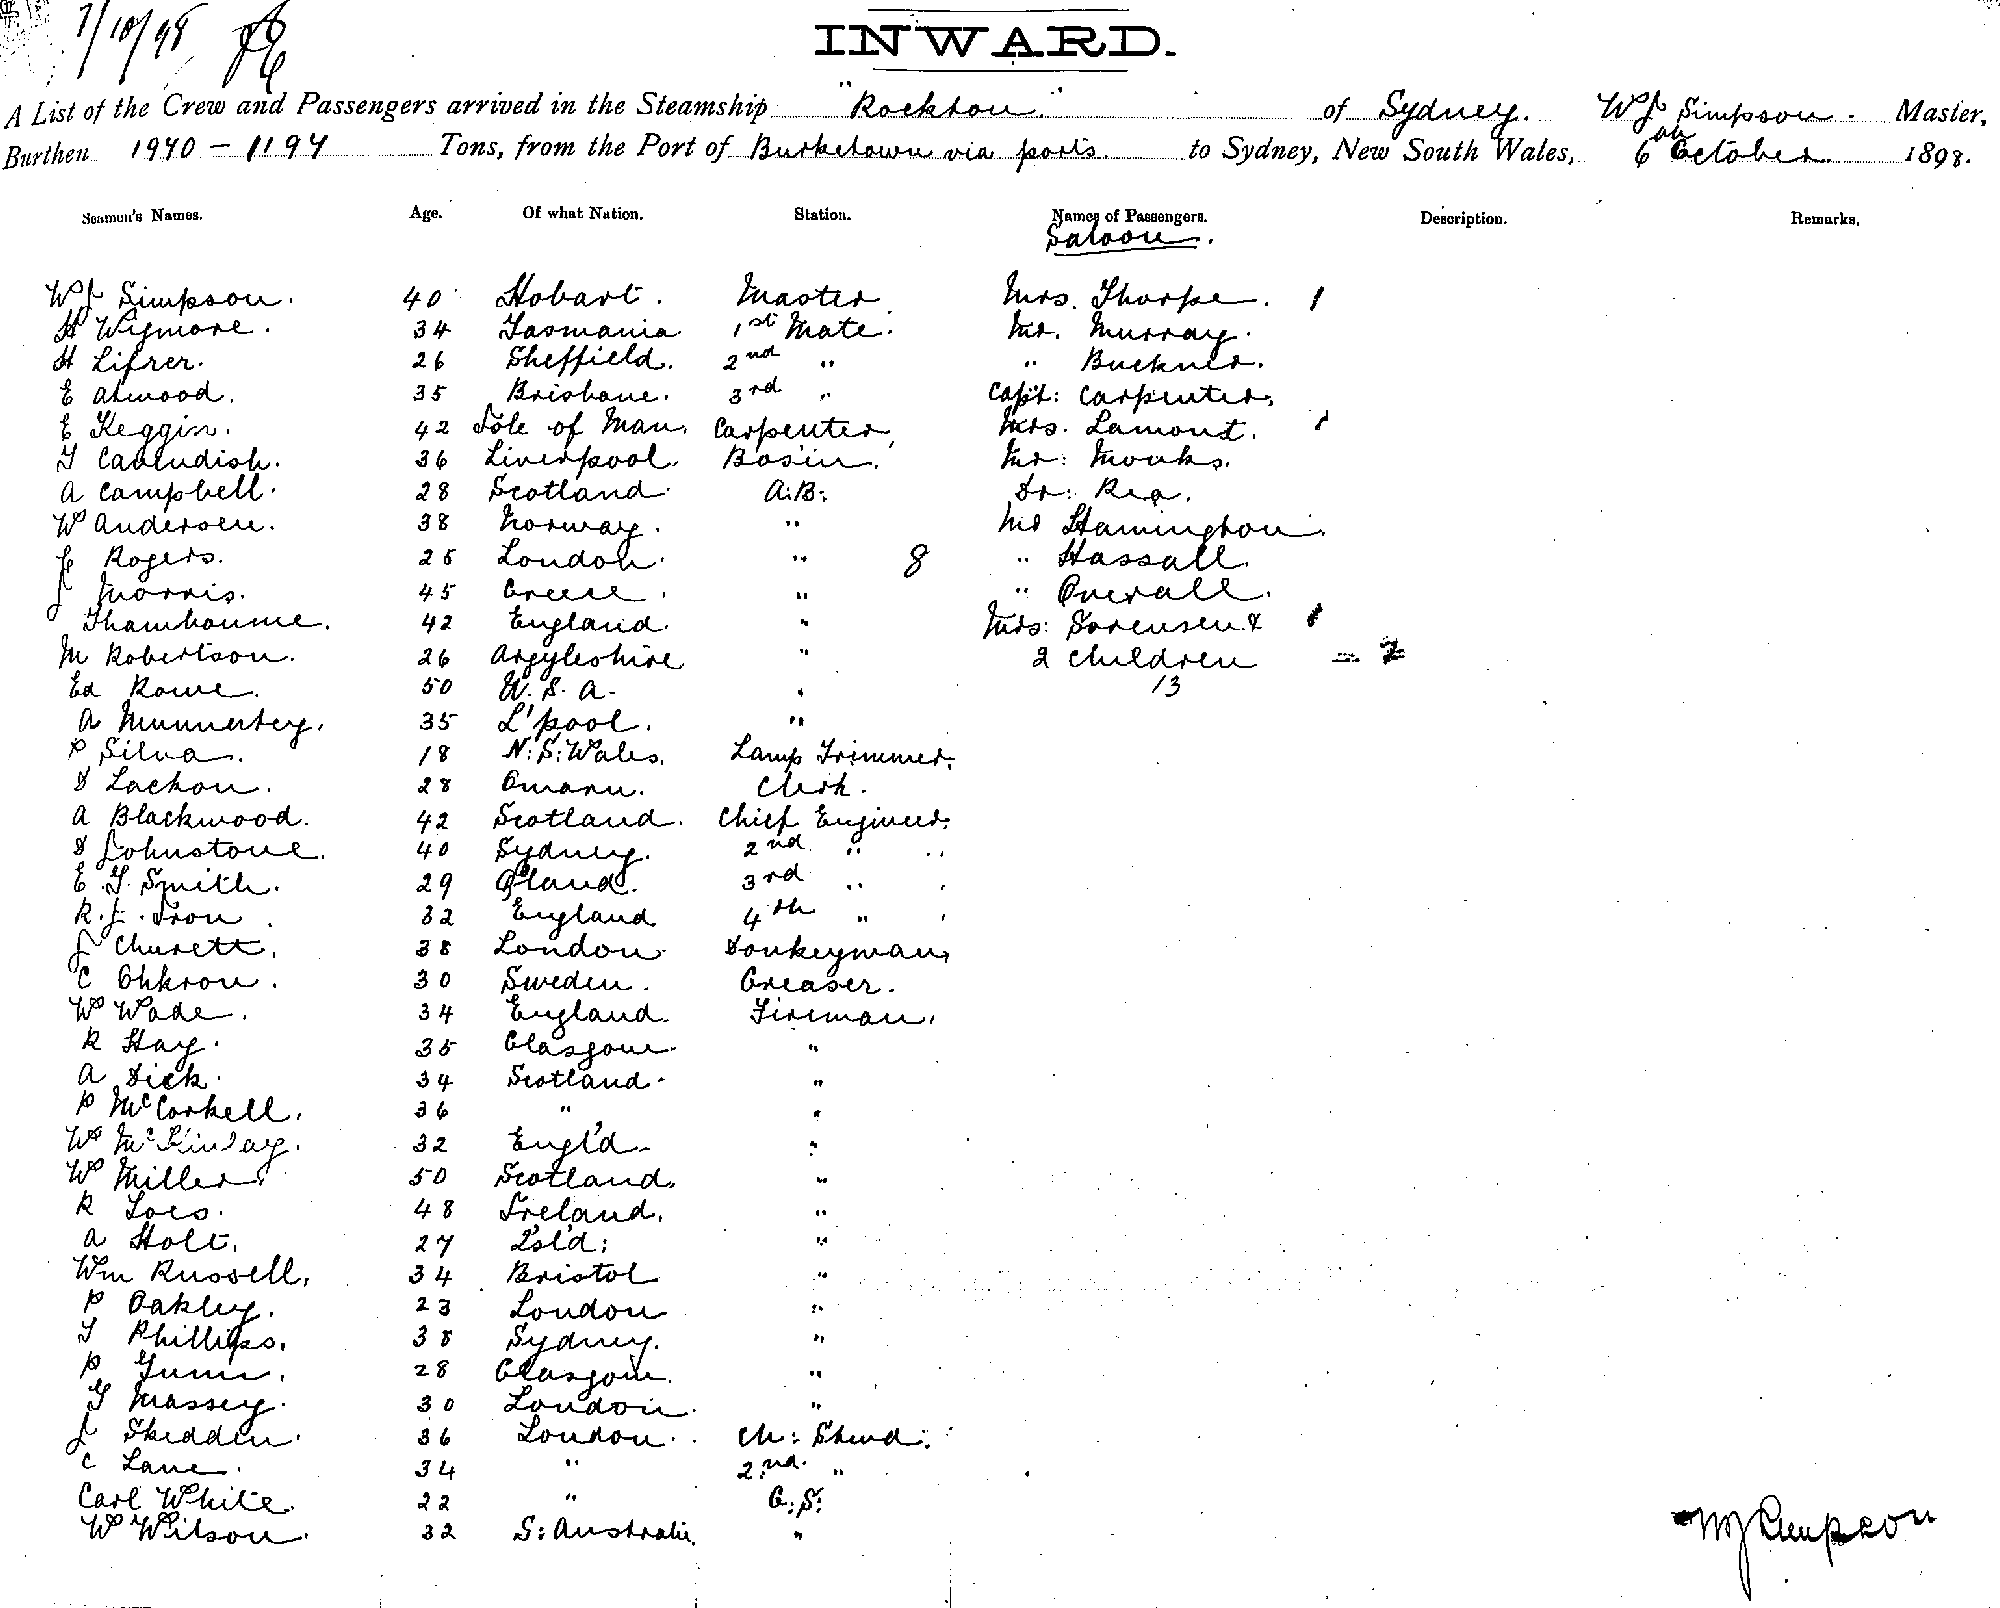 7/10/98
INWARD.
A List of the Crew and Passengers arrived in the Steamship "Rockton" of Sydney. WJ Simpson. Master,
Burthen 1970 - 1194 Tons, from the Port of Burketown via ports. to Sydney, New South Wales, 6th October 1898.
Seamen's Names. Age. Of what Nation. Station. Names of Passengers. Description. Remarks.
Saloon.
WJ Simpson. 40 Hobart. Master Mrs. Thorpe. 1
H Wigmore. 34 Tasmania 1st Mate. Mr. Murray.
H Lifrer. 26 Sheffield. 2nd " " Buckner.
E Atwood. 35 Brisbane. 3rd " Capt: Carpenter,
E Keggin. 42 Isle of Man. Carpenter, Mrs. Lamont. 1
T Cavendish. 36 Liverpool. Bosin. Mr: Monks.
A Campbell. 28 Scotland. A.B: Dr: Rea.
W Andersen. 38 Norway. " Mr Hamington.
Rogers. 25 London. " 8 " Hassall.
J Morris. 45 Greece. " " Overall.
42 England. " Mrs: Sorensen & 1
M Robertson. 26 Argyleshire " 2 children - 2
Ed Rowe. 50 U.S.A. " 13
A Munnerley. 35 L'pool. "
P Silva. 18 N.S.Wales. Lamp Trimmer.
D Lachon. 28 Omaru. Clerk.
A Blackwood. 42 Scotland. Chief Engineer.
D Johnstone. 40 Sydney. 2nd " "
E. T. Smith. 29 Q'land. 3rd " "
R.J. Tron. 32 England 4th " "
J Churett. 38 London Donkeyman,
C Ohkron. 30 Sweden. Greaser.
W Wade. 34 England. Fireman.
R Hay. 35 Glasgow "
A Dick. 34 Scotland. "
P McCorkell. 36 " "
W McKinlay. 32 Engl'd "
W Miller 50 Scotland. "
R Loes. 48 Ireland. "
A Holt. 27 "
Wm Russell. 34 Bristol "
P Oakley. 23 London "
T Phillips. 38 Sydney. "
P Gunn. 28 Glasgow. "
G Massey. 30 London. "
J Skedden. 36 London. Ch: Stewd.
C Lane. 34 " 2nd. "
Carl White. 22 " G.S:
W Wilson. 32 S: Australia "
WJ Simpson